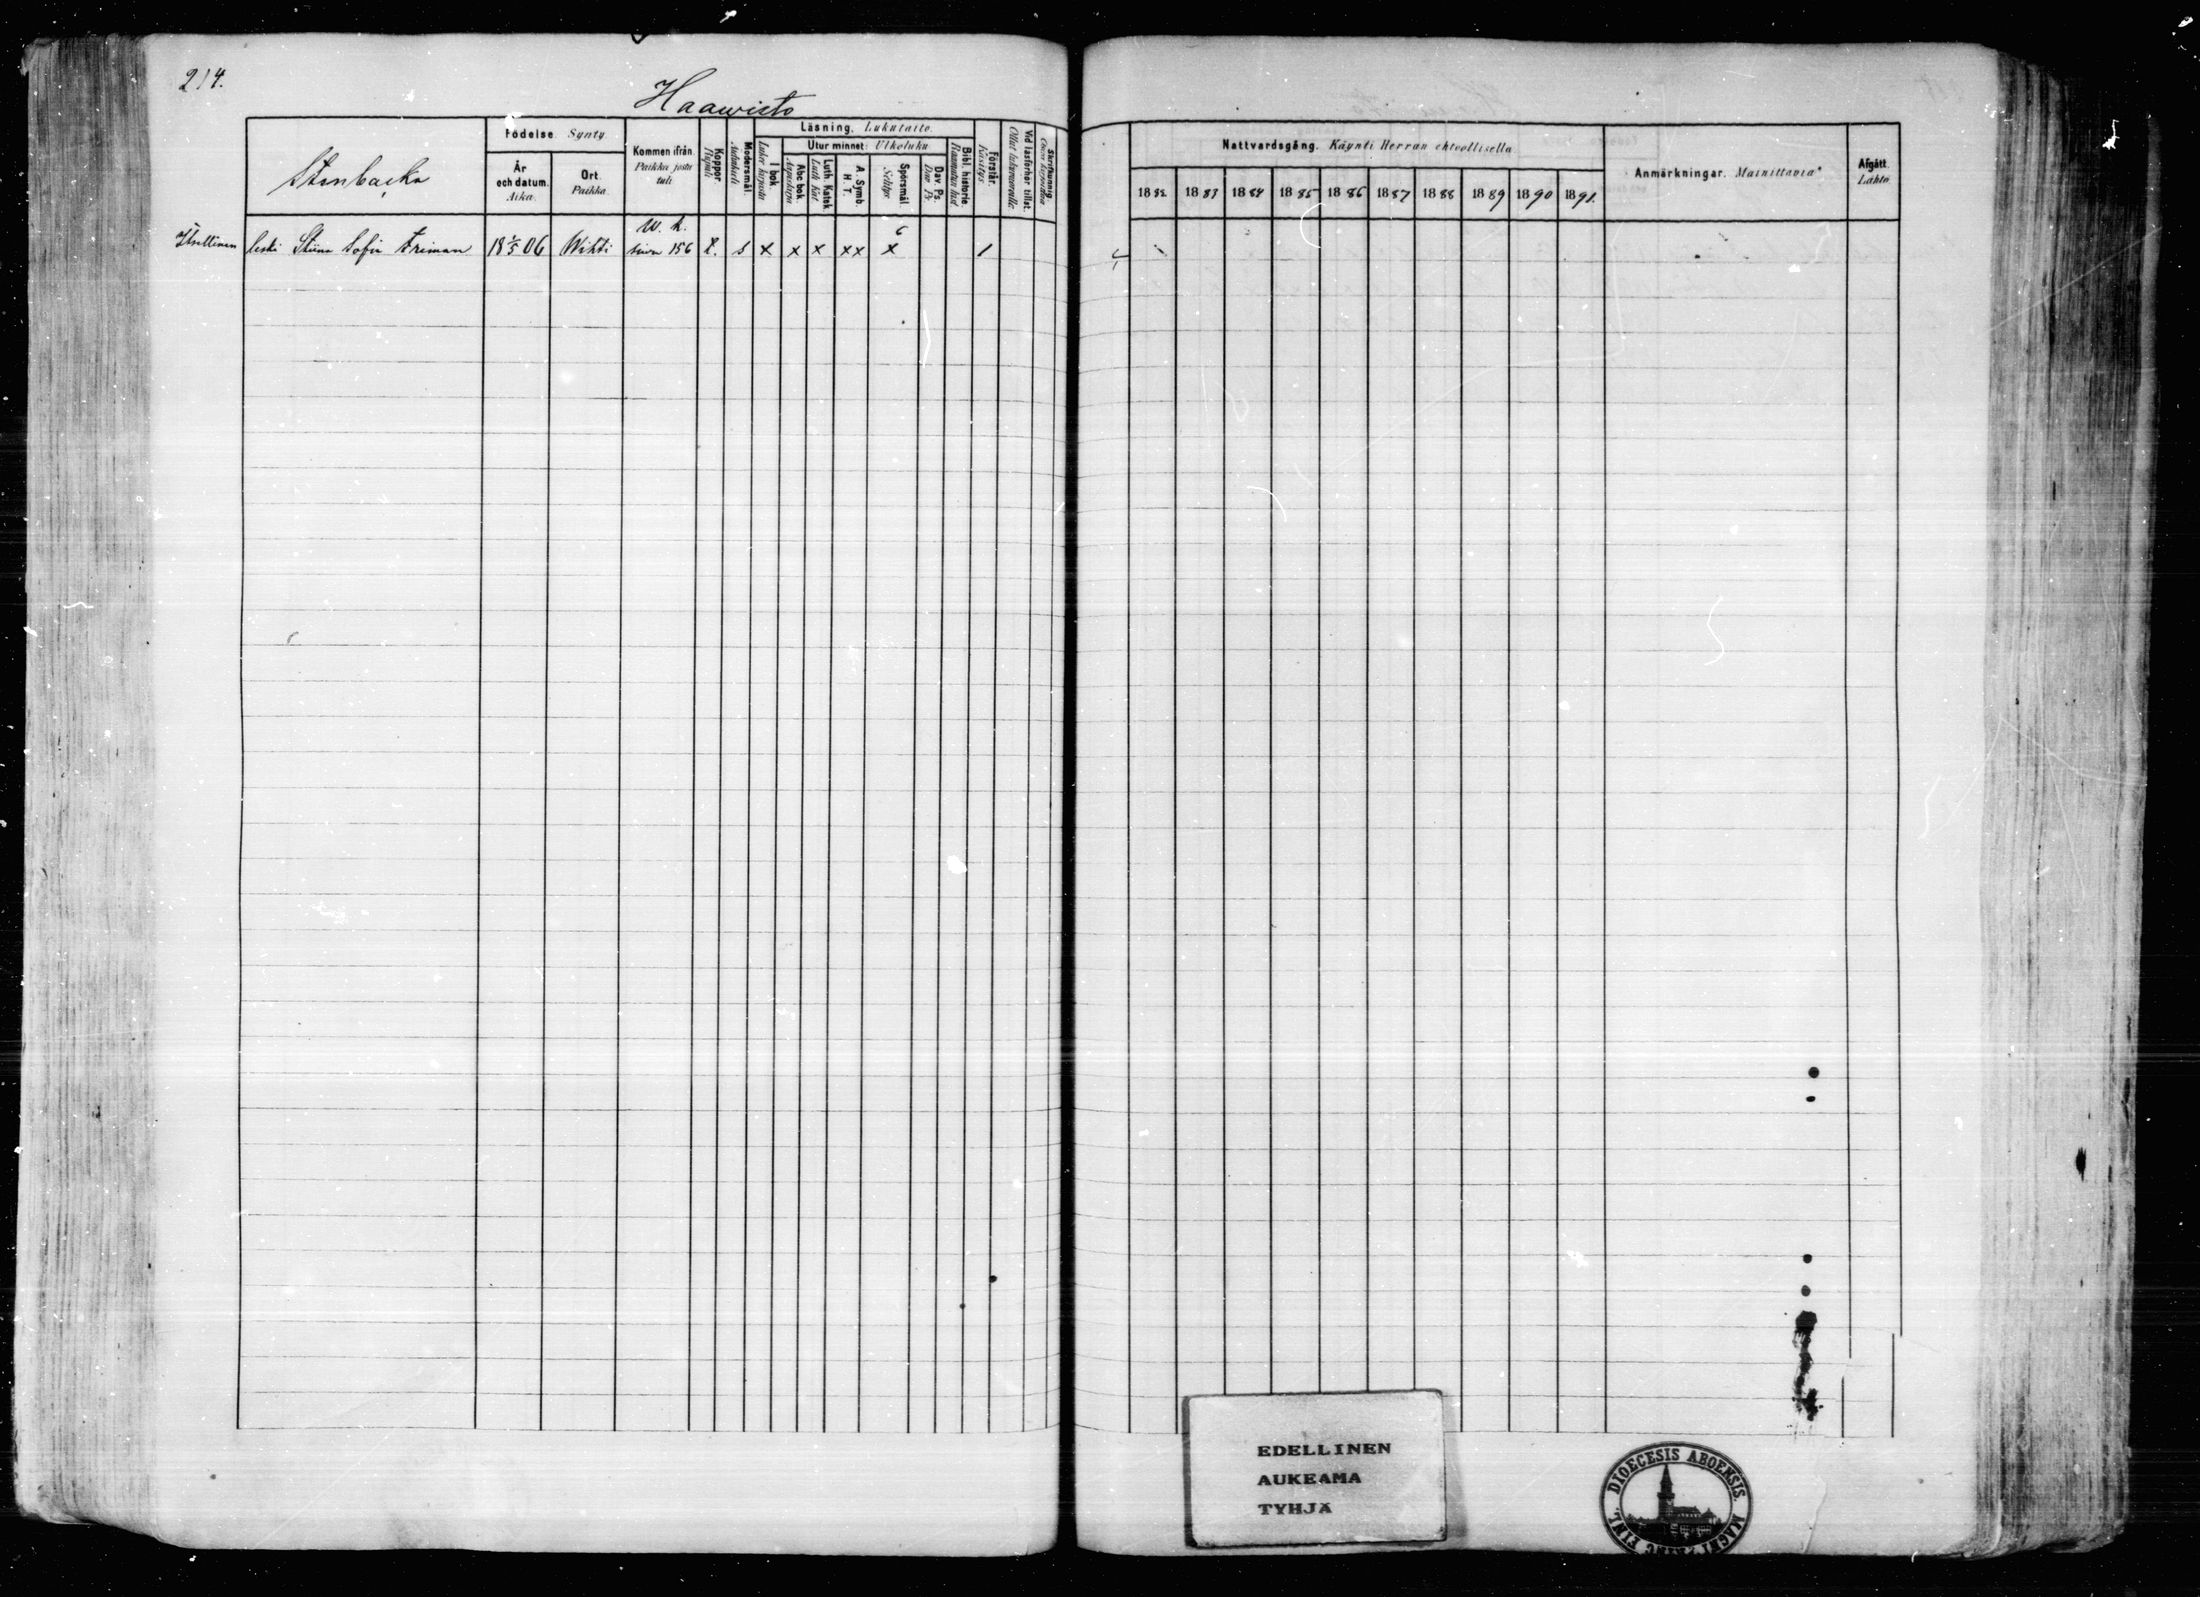 214.
Haawisto
Stenbacka
Födelse. Synty
År och datum. Aika.
Ort. Paikka.
Kommen ifrån. Paikka josta tuli
Koppor. Rupuli
Modersmål. Äidinkieli
Läsning. Lukutaito.
I bok Lukee kirjasta
Utur minnet: Ulkoluku
Abc bok Aapiskirja
Luth Katek. Luth. Kat.
A. Symb. H. T.
Spörsmål Selitys
Dav. Ps. Daw. Ps.
Bibl. historie Raamatun hist.
Förstår. Käsitys
Vid läsförhör tillst. Ollut lukuwuoroilla
Skrifkunnig Osaa kirjoittaa
Nattvardsgång. Käynti Herran ehtoollisella
1882 1883 1884 1885 1886 1887 1888 1889 1890 1891.
Anmärkningar. Mainittavia
Afgått. Lähtö
W. k. 6
leski Stiina Sofia Friman 18 1/5 06 Wihti sivu 156 s x x x xx x 1
EDELLINEN
AUKEAMA
TYHJÄ
DIOECESIS ABOENSIS. MAGNI FINL.